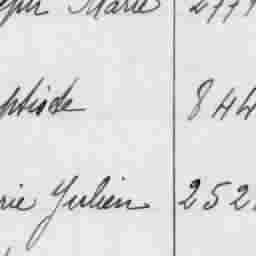 eph Marie 2777
ptiste 844
rie Julien 252